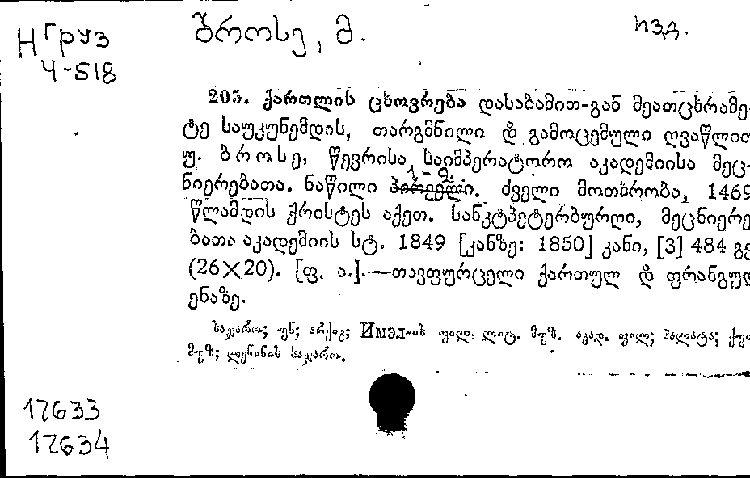 Н Груз
4-518
ბროსე, მ.
изд.
205. ქართლის ცხოვრება დასაბამით-გან მეათცხრამე-
ტე საუკუნემდის, თარგმნილი და გამოცემული ღვაწლით
უ. ბროსე, წევრისა საიმპერატორო აკადემიისა მეც-
1-ლი
ნიერებათა. ნაწილი პირველი. ძველი მოთხრობა, 1469
წლამდის ქრისტეს აქეთ. სანკტპეტერბურღი, მეცნიერე
ბათა აკადემიის სტ. 1849 [კანზე: 1850] კანი, [3] 484 გვ
(26X20). [ფ. ა.].—თავფურცელი ქართულ და ფრანგულ
ენაზე.
საჯარო; უნ; არქივ; ИМЭЛ-ის ფილ. ლიტ. მუზ. აკად. ფილ; პალატა; ქუთ
მუზ; ლენინის საჯარო.
17633
17634